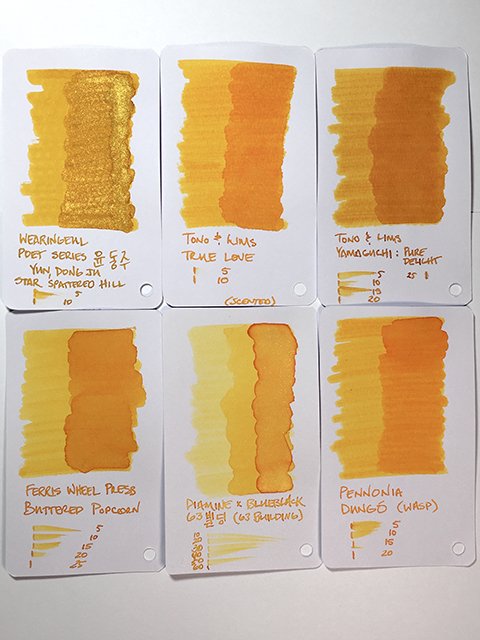 WEARINGEUL
POET SERIES 윤동주
YUN, DONG JU
STAR SPATTERED HILL
5
10
TONO & LIMS
TRUE LOVE
5
10
(SCENTED)
TONO & LIMS
YAMAGUCHI: PURE
DELIGHT
5 25
10
15
20
FERRIS WHEEL PRESS
BUTTERED POPCORN
5
10
15
20
25
DIAMINE x BLUEBLACK
63 빌딩 (63 BUILDING)
PENNONIA
DUNGÓ (WASP)
5
10
15
20